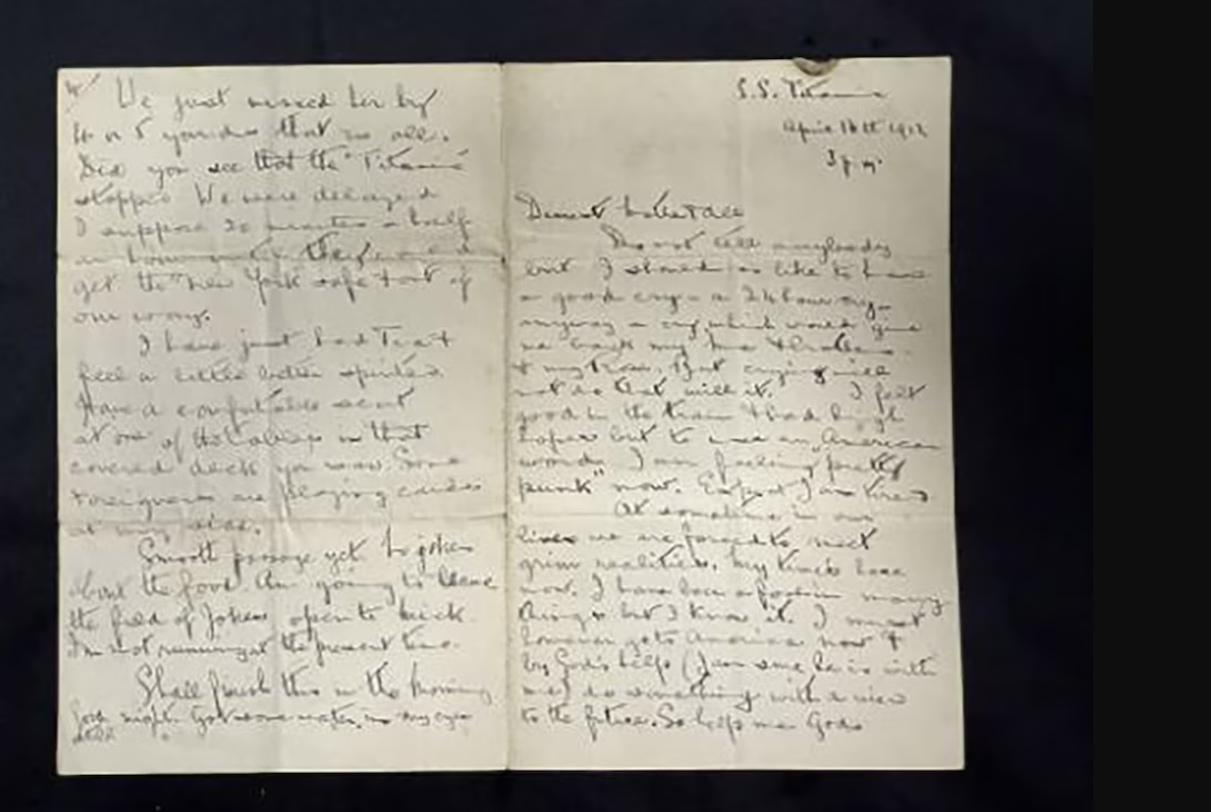 S.S. Titanic
April 10th 1912
3 p.m.
Dearest Mother & all
Do not tell anybody
but I should so like to have
a good cry - a 24 hour cry -
anyway a cry which would give
me back my &
& my Rose. But crying will
not do that will it. I felt
good in the train & had high
hopes but to use an "American
word" I am feeling "pretty
punk" now. Expect I am tired
At sometime in our
lives we are forced to meet
grim realities. My time's here
now. I have been a fool in many
things but I know it. I must
however go to America now &
by God's help (I am sure he is with
me) do something with a view
to the future. So help me God
4/ We just missed her by
4 or 5 yards that is all.
Did you see that the "Titanic
stopped. We were delayed
I suppose 20 minutes a half
an hour until they could
get the "New York safe & out of
our way.
I have just had Tea &
feel a little better spirited.
Have a comfortable seat
at one of the tables in that
covered deck you saw. Some
Foreigners are playing cards
at my side.
Smooth passage yet. No jokes
about the food. Am going to leave
the field of Jokes open to Mick.
I'm not running at the present time.
Shall finish this in the morning
Good night. Got some water in my eyes